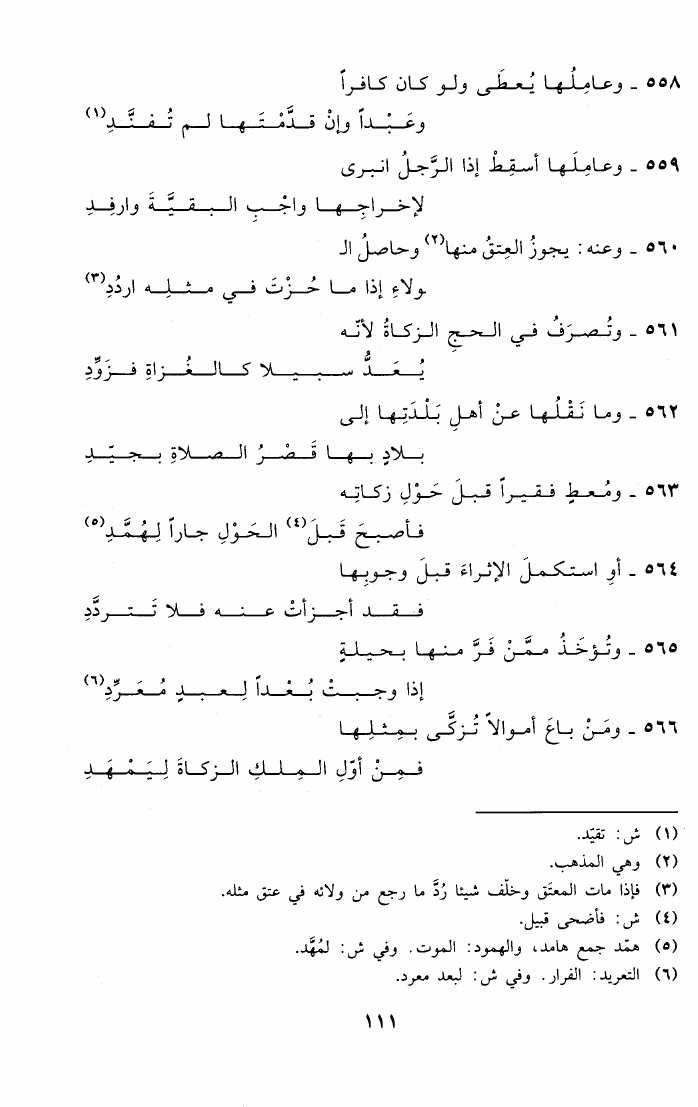 ٥٥٨ ـ وعامِلُها يُعطَى ولو كان كافراً
وعَبْداً وإنْ قدَّمْتَها لم تُفنَّدِ(١)
٥٥٩ ـ وعامِلَها أسقِطْ إذا الرَّجلُ انبرى
لإخراجِها واجْبِ البقيَّةَ وارفِدِ
٥٦٠ ـ وعنه: يجوزُ العِتقُ منها(٢) وحاصلُ الـ
ـولاءِ إذا ما حُزْتَ في مثلِه اردُدِ(٣)
٥٦١ ـ وتُصرَفُ في الحجِ الزكاةُ لأنّه
يُعَدُّ سبيلا كالغُزاةِ فزَوِّدِ
٥٦٢ ـ وما نَقْلُها عنْ أهلِ بَلْدَتِها إلى
بلادٍ بها قَصْرُ الصلاةِ بجيّدِ
٥٦٣ ـ ومُعطٍ فقيراً قبلَ حَوْلِ زكاتِه
فأصبحَ قَبلَ(٤) الحَوْلِ جاراً لِهُمَّدِ(٥)
٥٦٤ ـ أوِ استكملَ الإثراءَ قبلَ وجوبِها
فقد أجزأتْ عنه فلا تَتردَّدِ
٥٦٥ ـ وتُؤخَذُ ممَّنْ فَرَّ منها بحيلةٍ
إذا وجبتْ بُعْداً لِعبدٍ مُعَرِّدِ(٦)
٥٦٦ ـ ومَنْ باعَ أموالاً تُزكَّى بمِثلِها
فمِنْ أوّلِ المِلكِ الزكاةَ لِيَمْهَدِ
(١) ش: تقيّد.
(٢) وهي المذهب.
(٣) فإذا مات المعتَق وخلّف شيئا رُدَّ ما رجع من ولائه في عتق مثله.
(٤) ش: فأضحى قبيل.
(٥) همّد جمع هامد، والهمود: الموت. وفي ش: لمُهَّد.
(٦) التعريد: الفرار. وفي ش: لبعد معرد.
١١١